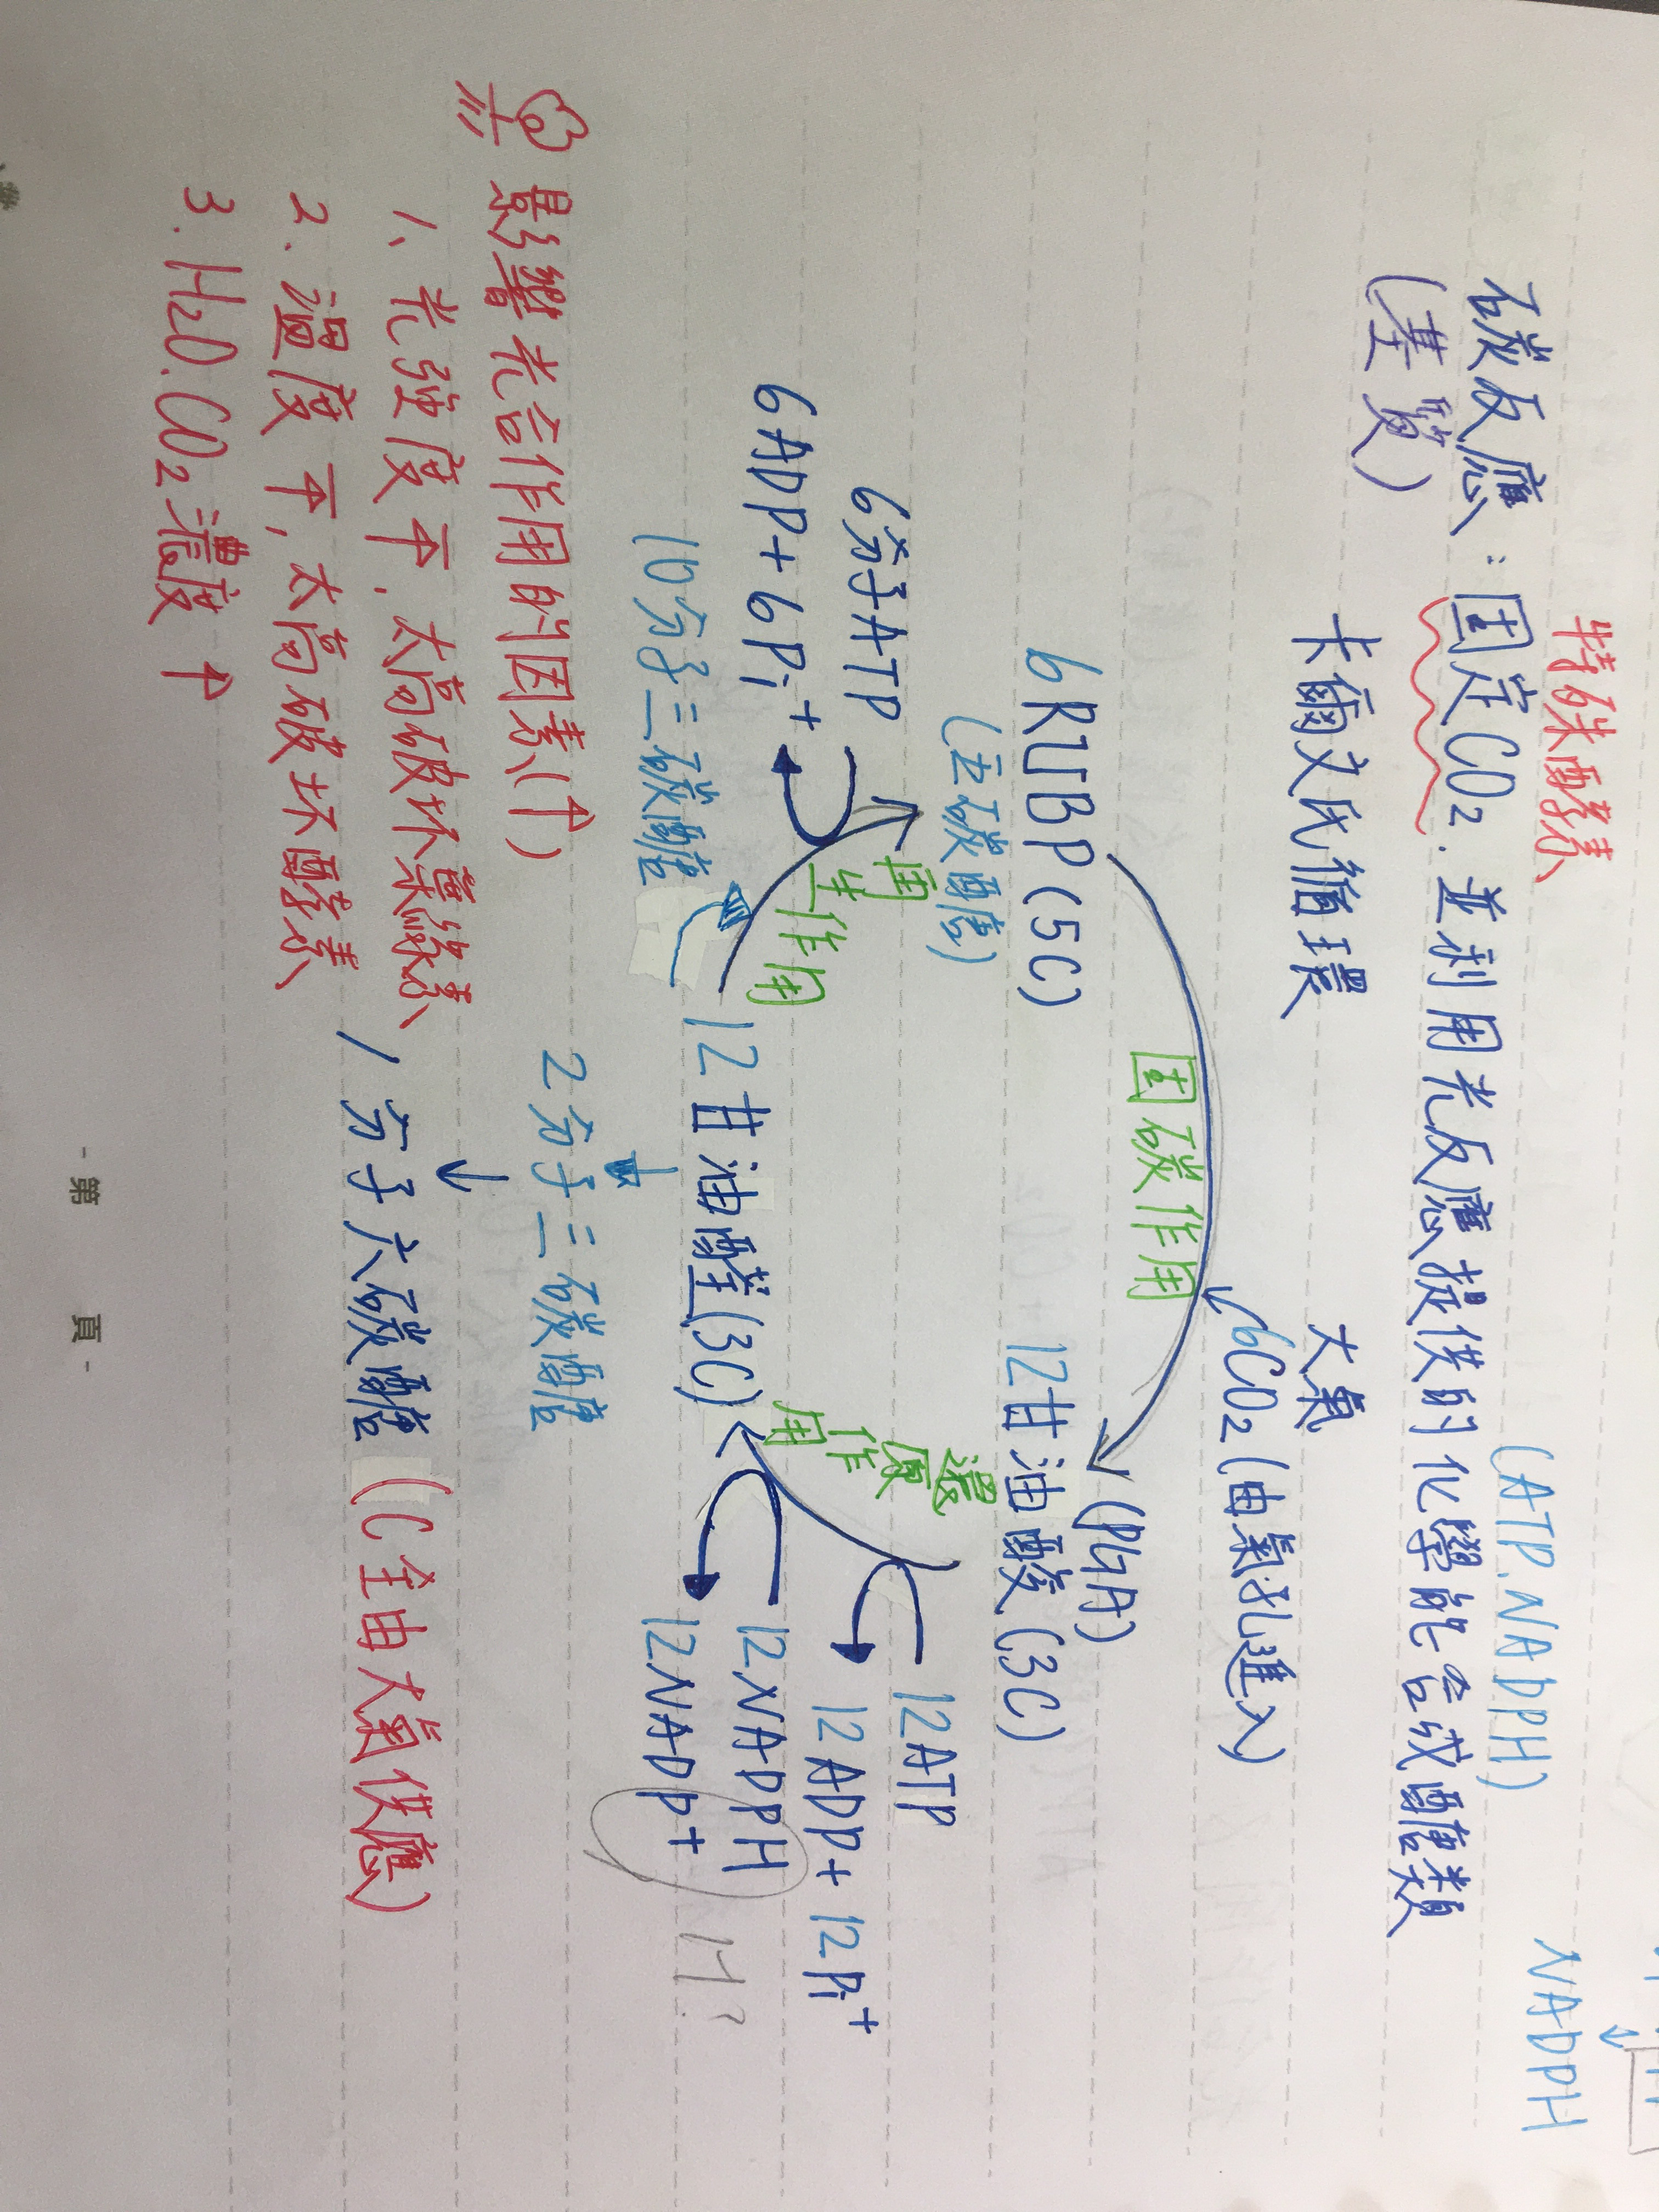 NADPH
特殊酵素
(ATP.NADPH)
碳反應：固定CO2.並利用光反應提供的化學能合成醣類
(基質)
卡爾文氏循環
大氣
6CO2(由氣孔進入)
固碳作用
(PGA)
6RUBP(5C)
12甘油酸(3C)
(五碳醣)
還原作用
再生作用
6分子ATP
12ATP
6ADP+6Pi+
12ADP+12Pi+
12甘油醛(3C)
12NADPH
10分子三碳醣
12NADP+
H?
2分子三碳醣
影響光合作用的因素(↑)
1、光強度↑,太高破坏葉綠素
↓
1分子六碳醣(C全由大氣供應)
2.溫度↑,太高破坏酵素
3.H2O.CO2濃度↑
-第 頁-